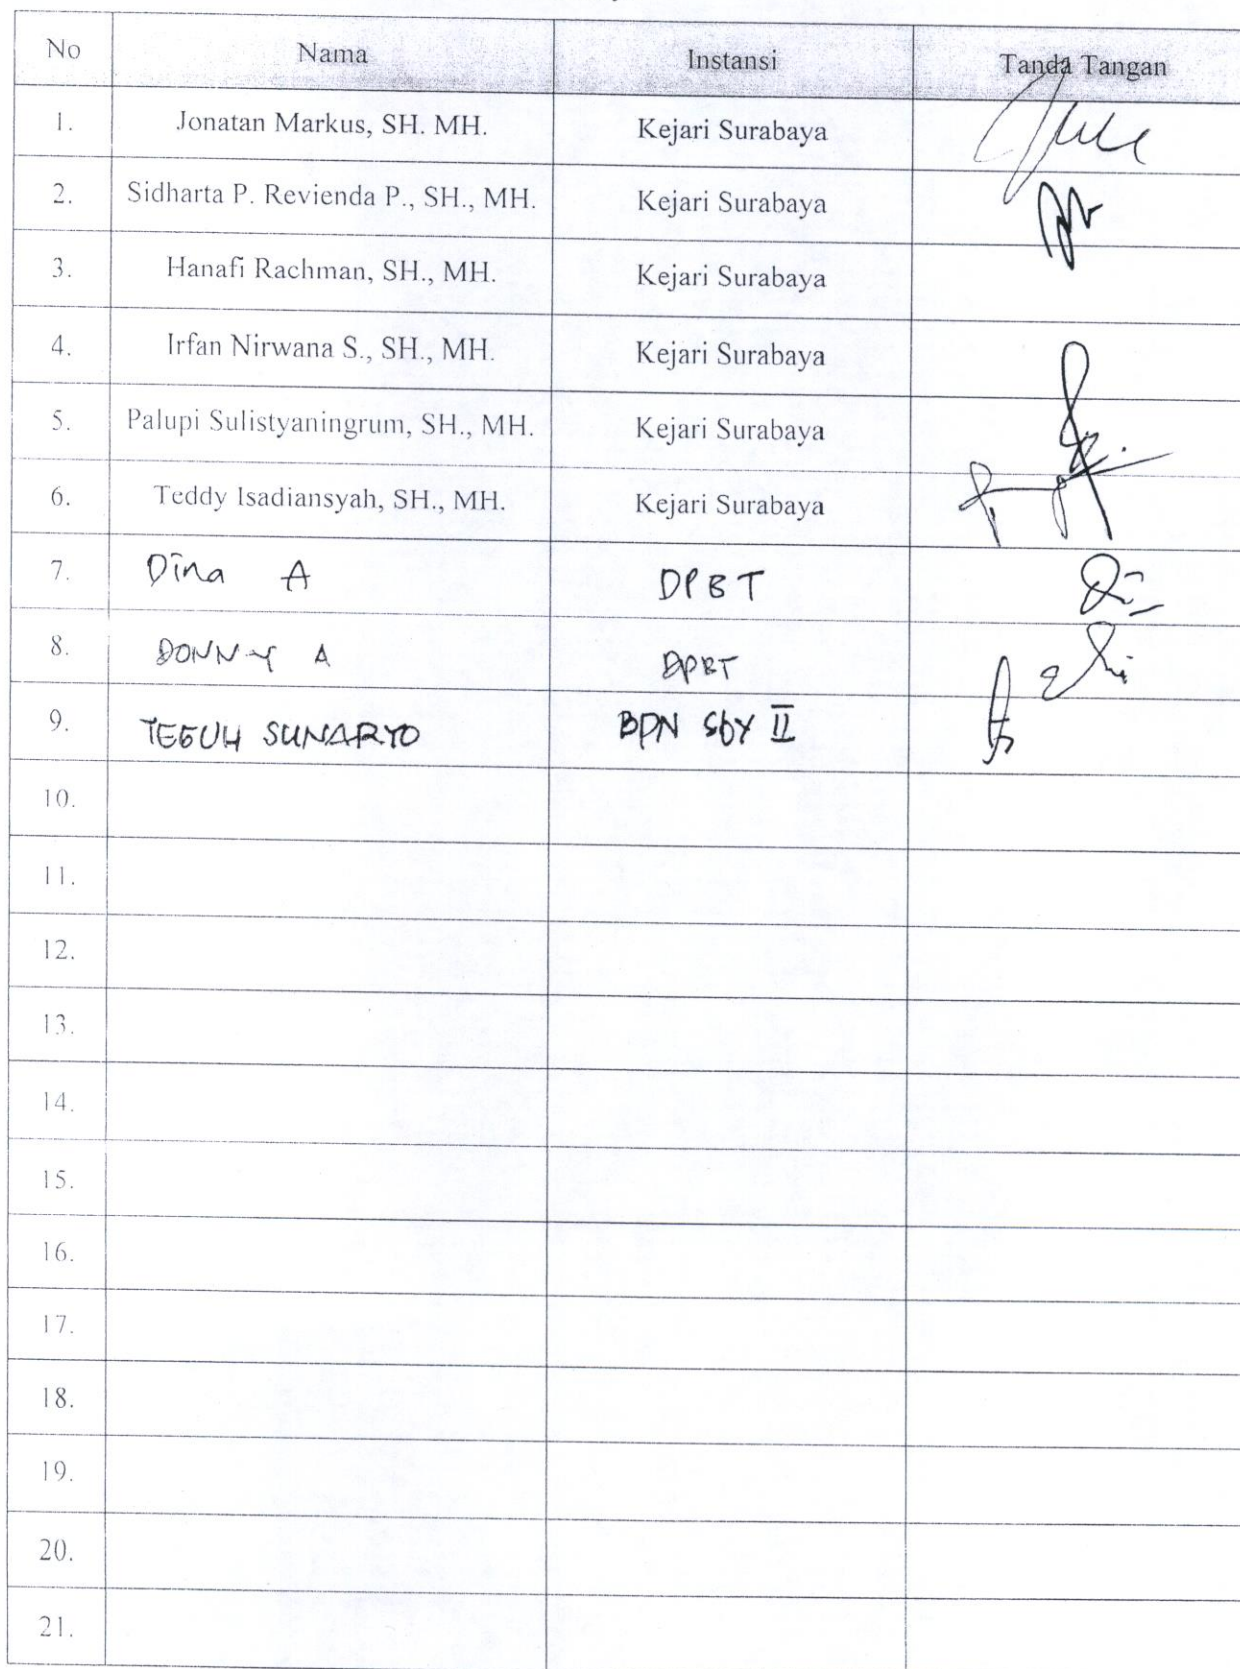 No Nama Instansi Tanda Tangan
1. Jonatan Markus, SH. MH. Kejari Surabaya
2. Sidharta P. Revienda P., SH., MH. Kejari Surabaya
3. Hanafi Rachman, SH., MH. Kejari Surabaya
4. Irfan Nirwana S., SH., MH. Kejari Surabaya
5. Palupi Sulistyaningrum, SH., MH. Kejari Surabaya
6. Teddy Isadiansyah, SH., MH. Kejari Surabaya
7. Dina A DPBT
8. DONNY A DPBT
9. TEGUH SUNARYO BPN SbY II
10.
11.
12.
13.
14.
15.
16.
17.
18.
19.
20.
21.